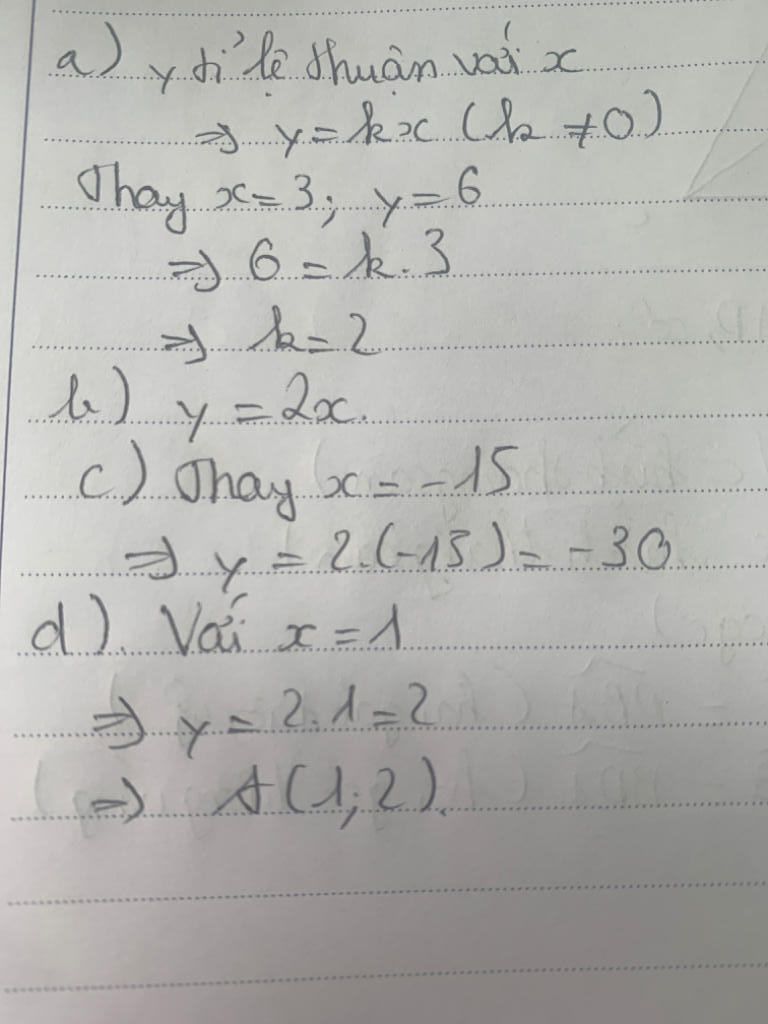 a) y tỉ lệ thuận với x
=> y = kx (k ≠ 0)
Thay x = 3; y = 6
=> 6 = k. 3
=> k = 2
b) y = 2x.
c) Thay x = -15
=> y = 2.(-15) = -30
d). Với x = 1
=> y = 2.1 = 2
=> A(1; 2).